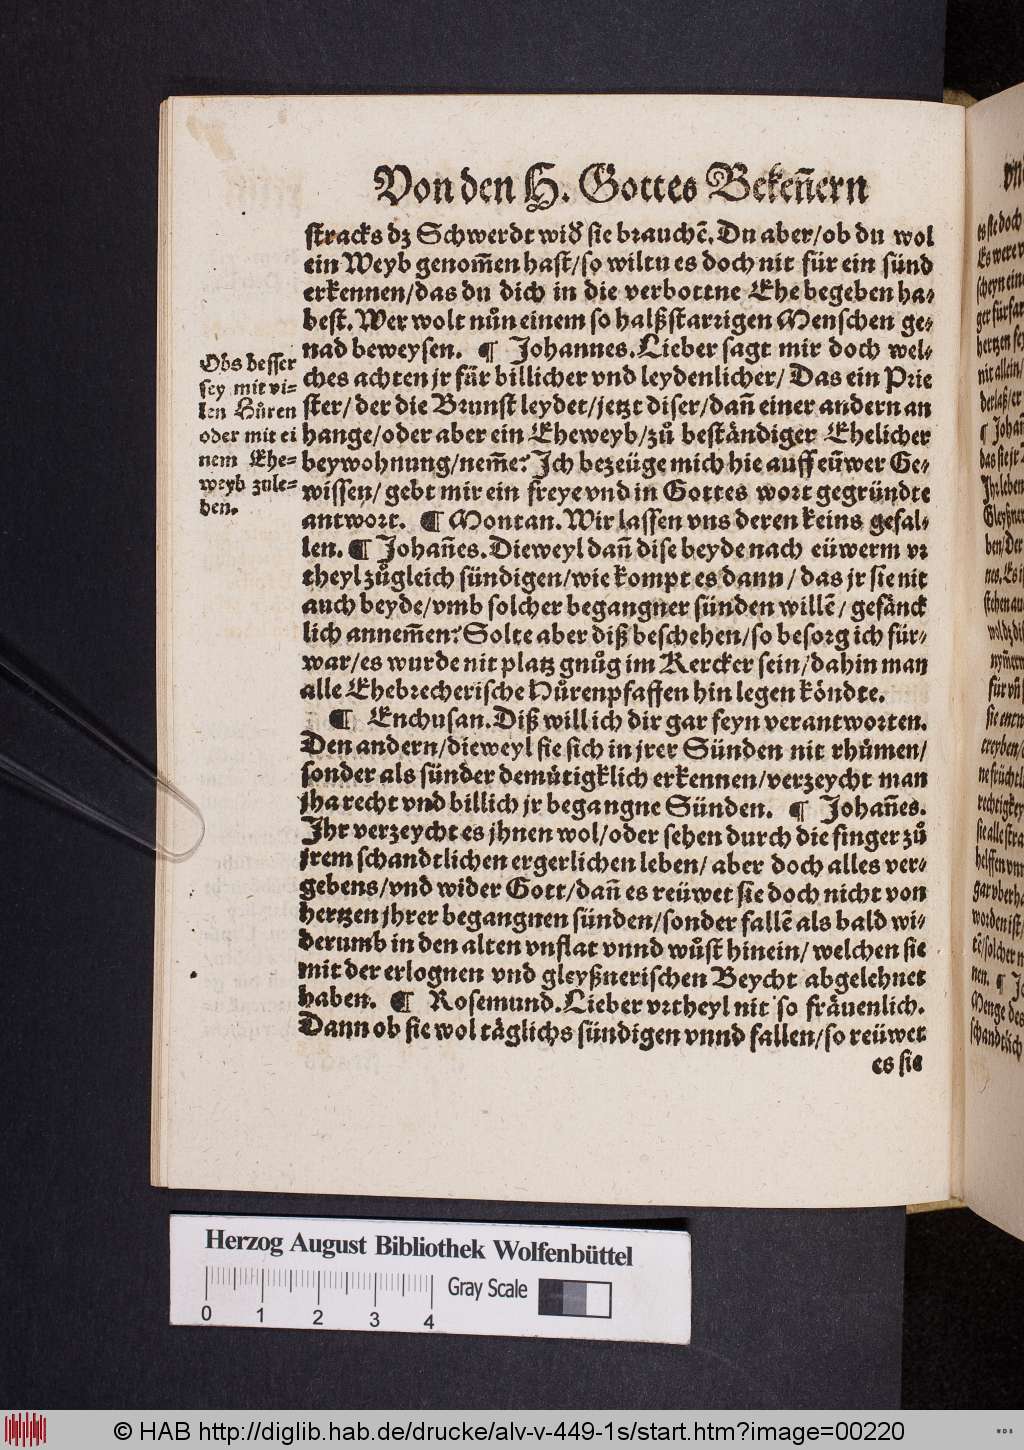 Von den H. Gottes Bekeñern
stracks dz Schwerdt wid&#x27; sie brauchē. Du aber/ob du wol
ein Weyb genom̃en hast/so wiltu es doch nit für ein sünd
erkennen/das du dich in die verbottne Ehe begeben ha-
best. Wer wolt nůn einem so halßstarrigen Menschen ge-
nad beweysen. ¶ Johannes. Lieber sagt mir doch wel-
ches achten jr fär billicher vnd leydenlicher/ Das ein Prie
ster/ der die Brunst leydet/jetzt diser/dañ einer andern an
hange/oder aber ein Eheweyb/zů beständiger Ehelicher
beywohnung/nem̃e? Jch bezeüge mich hie auff eüwer Ge-
wissen/ gebt mir ein freye vnd in Gottes wort gegründte
antwort. ¶ Montan. Wir lassen vns deren keins gefal-
len. ¶ Johañes. Dieweyl dañ dise beyde nach eüwerm vr
theyl zůgleich sündigen/wie kompt es dann/ das jr sie nit
auch beyde/vmb solcher begangner sünden willē/ gefänck
lich annem̃en? Solte aber diß beschehen/so besorg ich für-
war/es wurde nit platz gnůg im Kercker sein/dahin man
alle Ehebrecherische Hůrenpfaffen hin legen köndte.
¶ Enchusan. Diß will ich dir gar feyn verantworten.
Den andern/dieweyl sie sich in jrer Sünden nit rhůmen/
sonder als sünder demütigklich erkennen/verzeycht man
jha recht vnd billich jr begangne Sünden. ¶ Johañes.
Jhr verzeycht es jhnen wol/oder sehen durch die finger zů
jrem schandtlichen ergerlichen leben/ aber doch alles ver-
gebens/vnd wider Gott/dañ es reüwet sie doch nicht von
hertzen jhrer begangnen sünden/sonder fallē als bald wi-
derumb in den alten vnflat vnnd wůst hinein/ welchen sie
mit der erlognen vnd gleyßnerischen Beycht abgelehnet
haben. ¶ Rosemund. Lieber vrtheyl nit so fräuenlich.
Dann ob sie wol täglichs sündigen vnnd fallen/so reüwet
es sie
Obs besser
sey mit vi-
len Hůren
oder mit ei
nem Ehe-
weyb zule-
ben.
Herzog August Bibliothek Wolfenbüttel
Gray Scale
0 1 2 3 4
© HAB http://diglib.hab.de/drucke/alv-v-449-1s/start.htm?image=00220